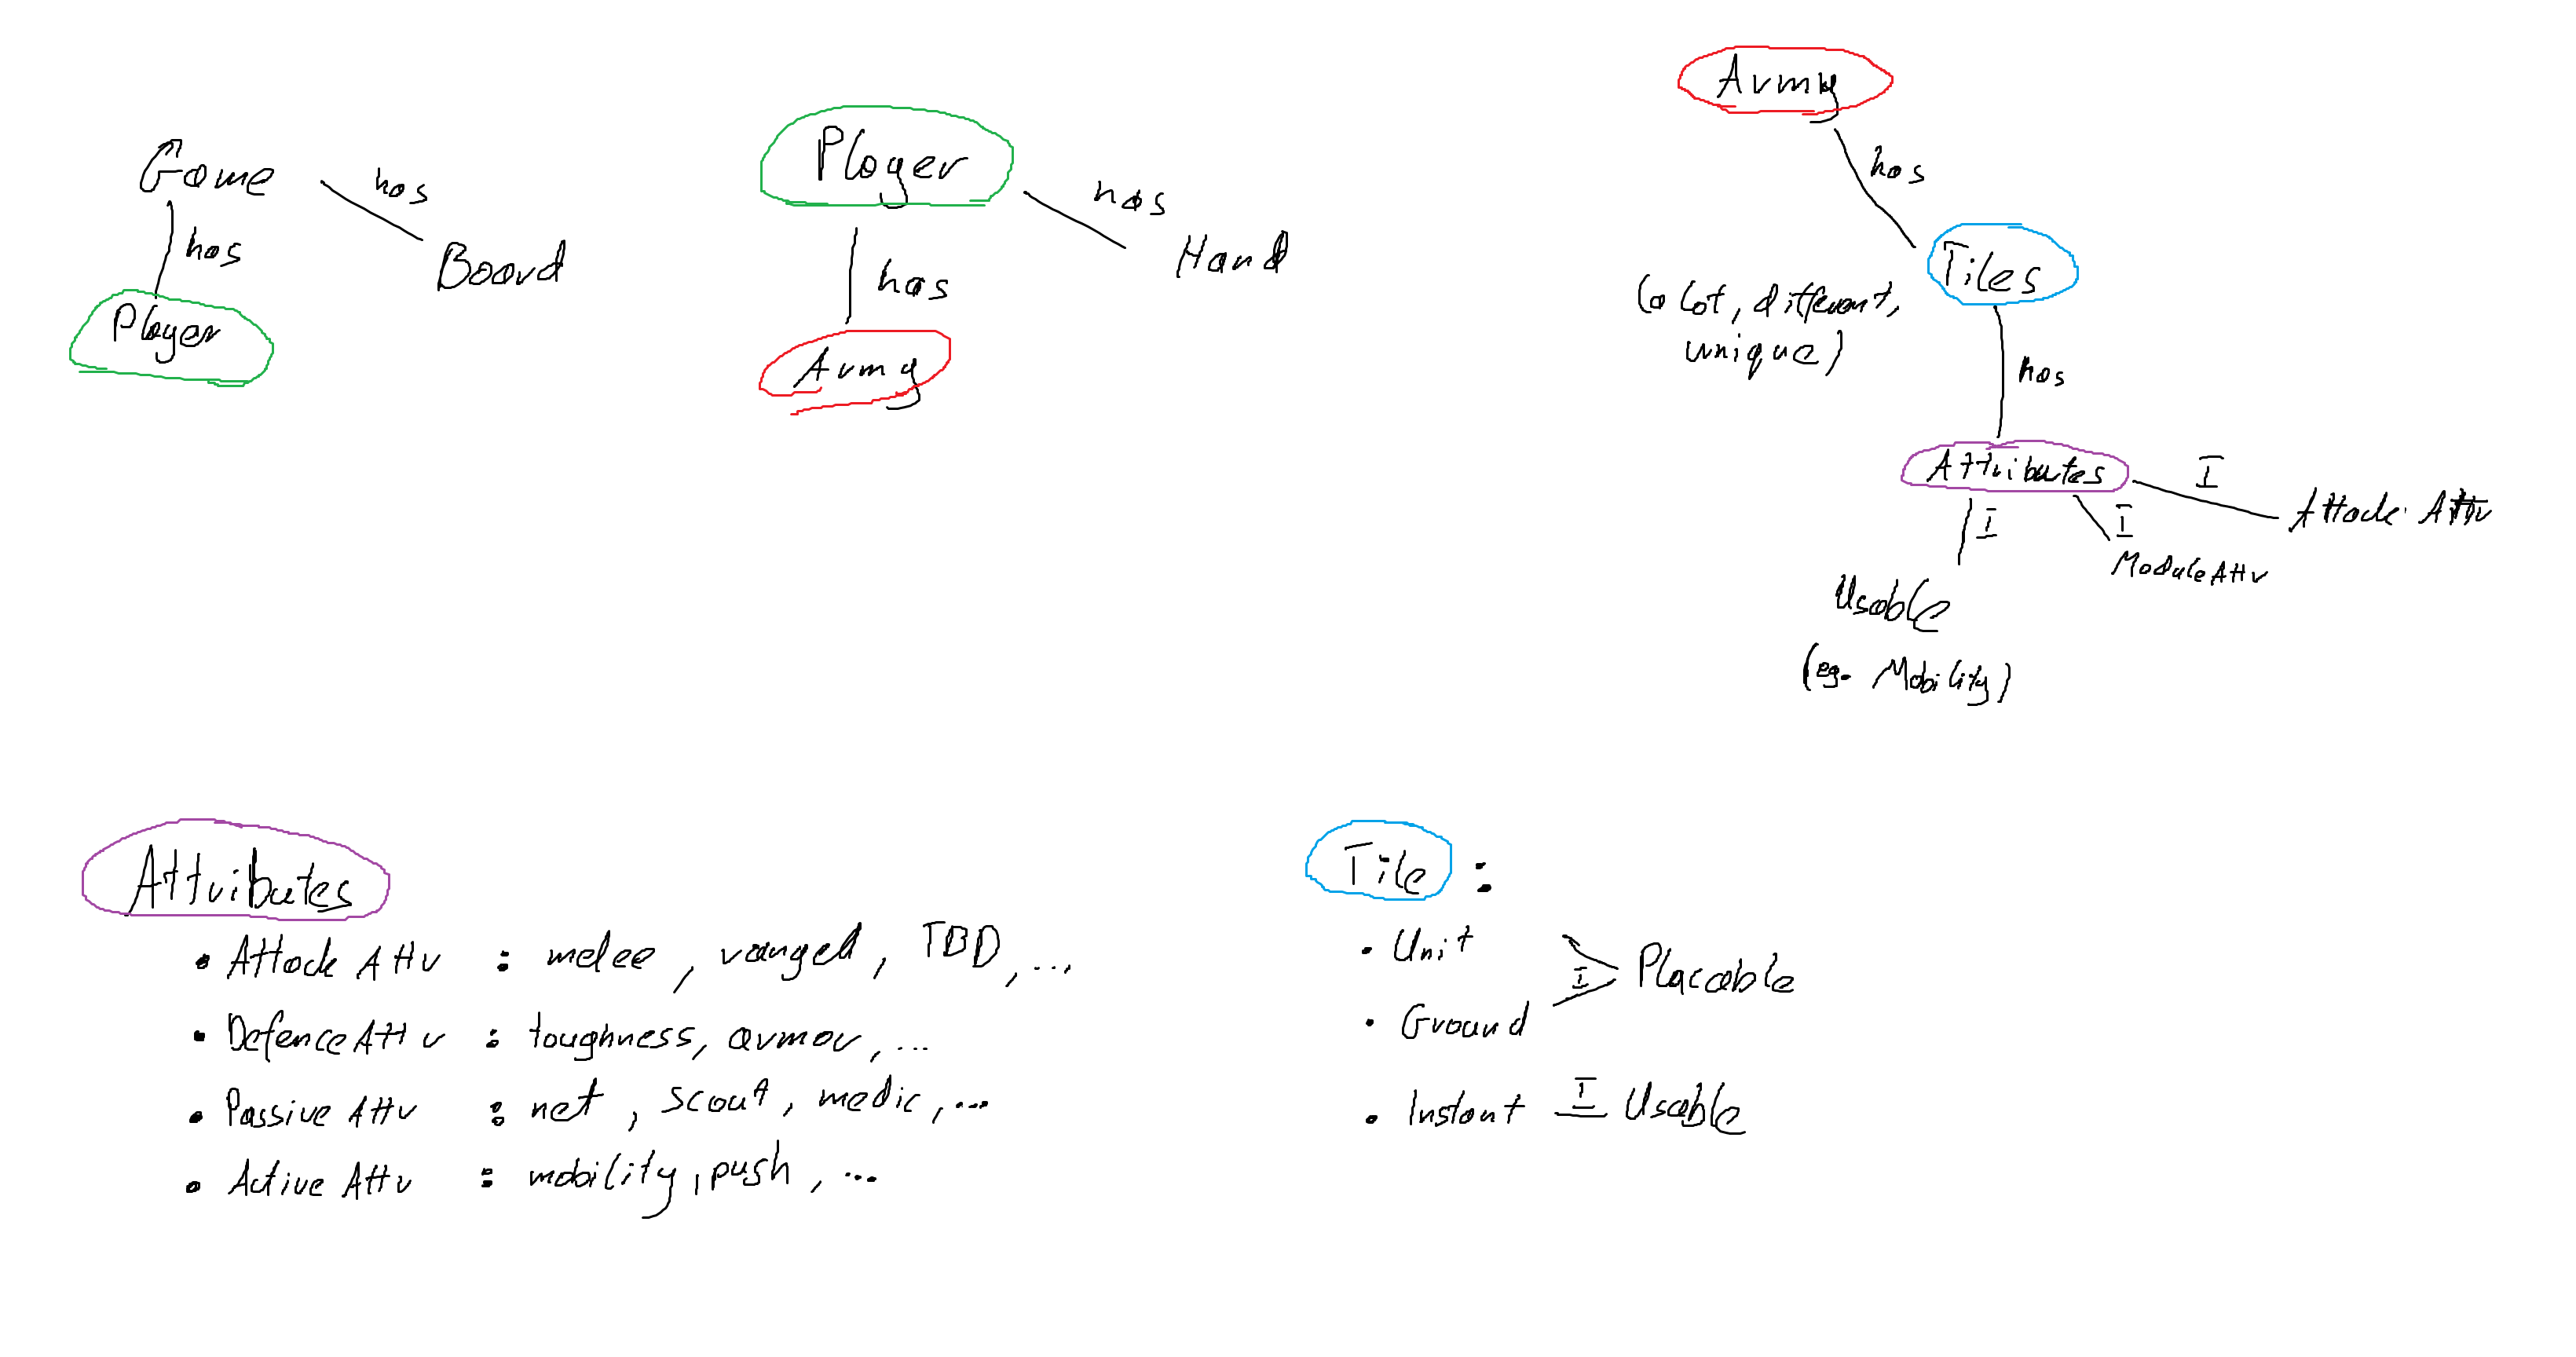 Game
has
Board
has
Player
Player
has
Hand
has
Army
Army
has
Tiles
(a lot, different,
unique)
has
Attributes
I
Attack Attr
I
ModuleAttr
I
Usable
(eg. Mobility)
Attributes
• Attack Attr : melee, ranged, TBD, ...
• DefenceAttr : toughness, armor, ...
• Passive Attr : net, scout, medic, ...
• Active Attr : mobility, push, ...
Tile :
• Unit
I Placable
• Ground
• Instant I Usable